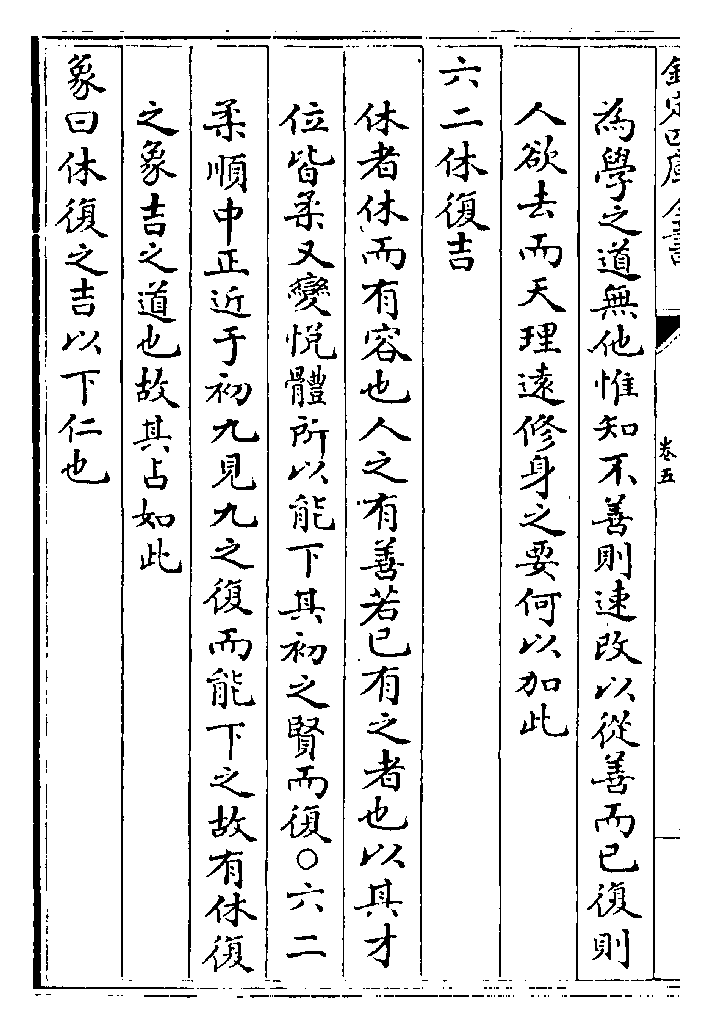 欽定四庫全書
卷五
為學之道無他惟知不善則速改以從善而已復則
人欲去而天理遠修身之要何以加此
六二休復吉
休者休而有容也人之有善若已有之者也以其才
位皆柔又變悅體所以能下其初之賢而復○六二
柔順中正近于初九見九之復而能下之故有休復
之象吉之道也故其占如此
象曰休復之吉以下仁也